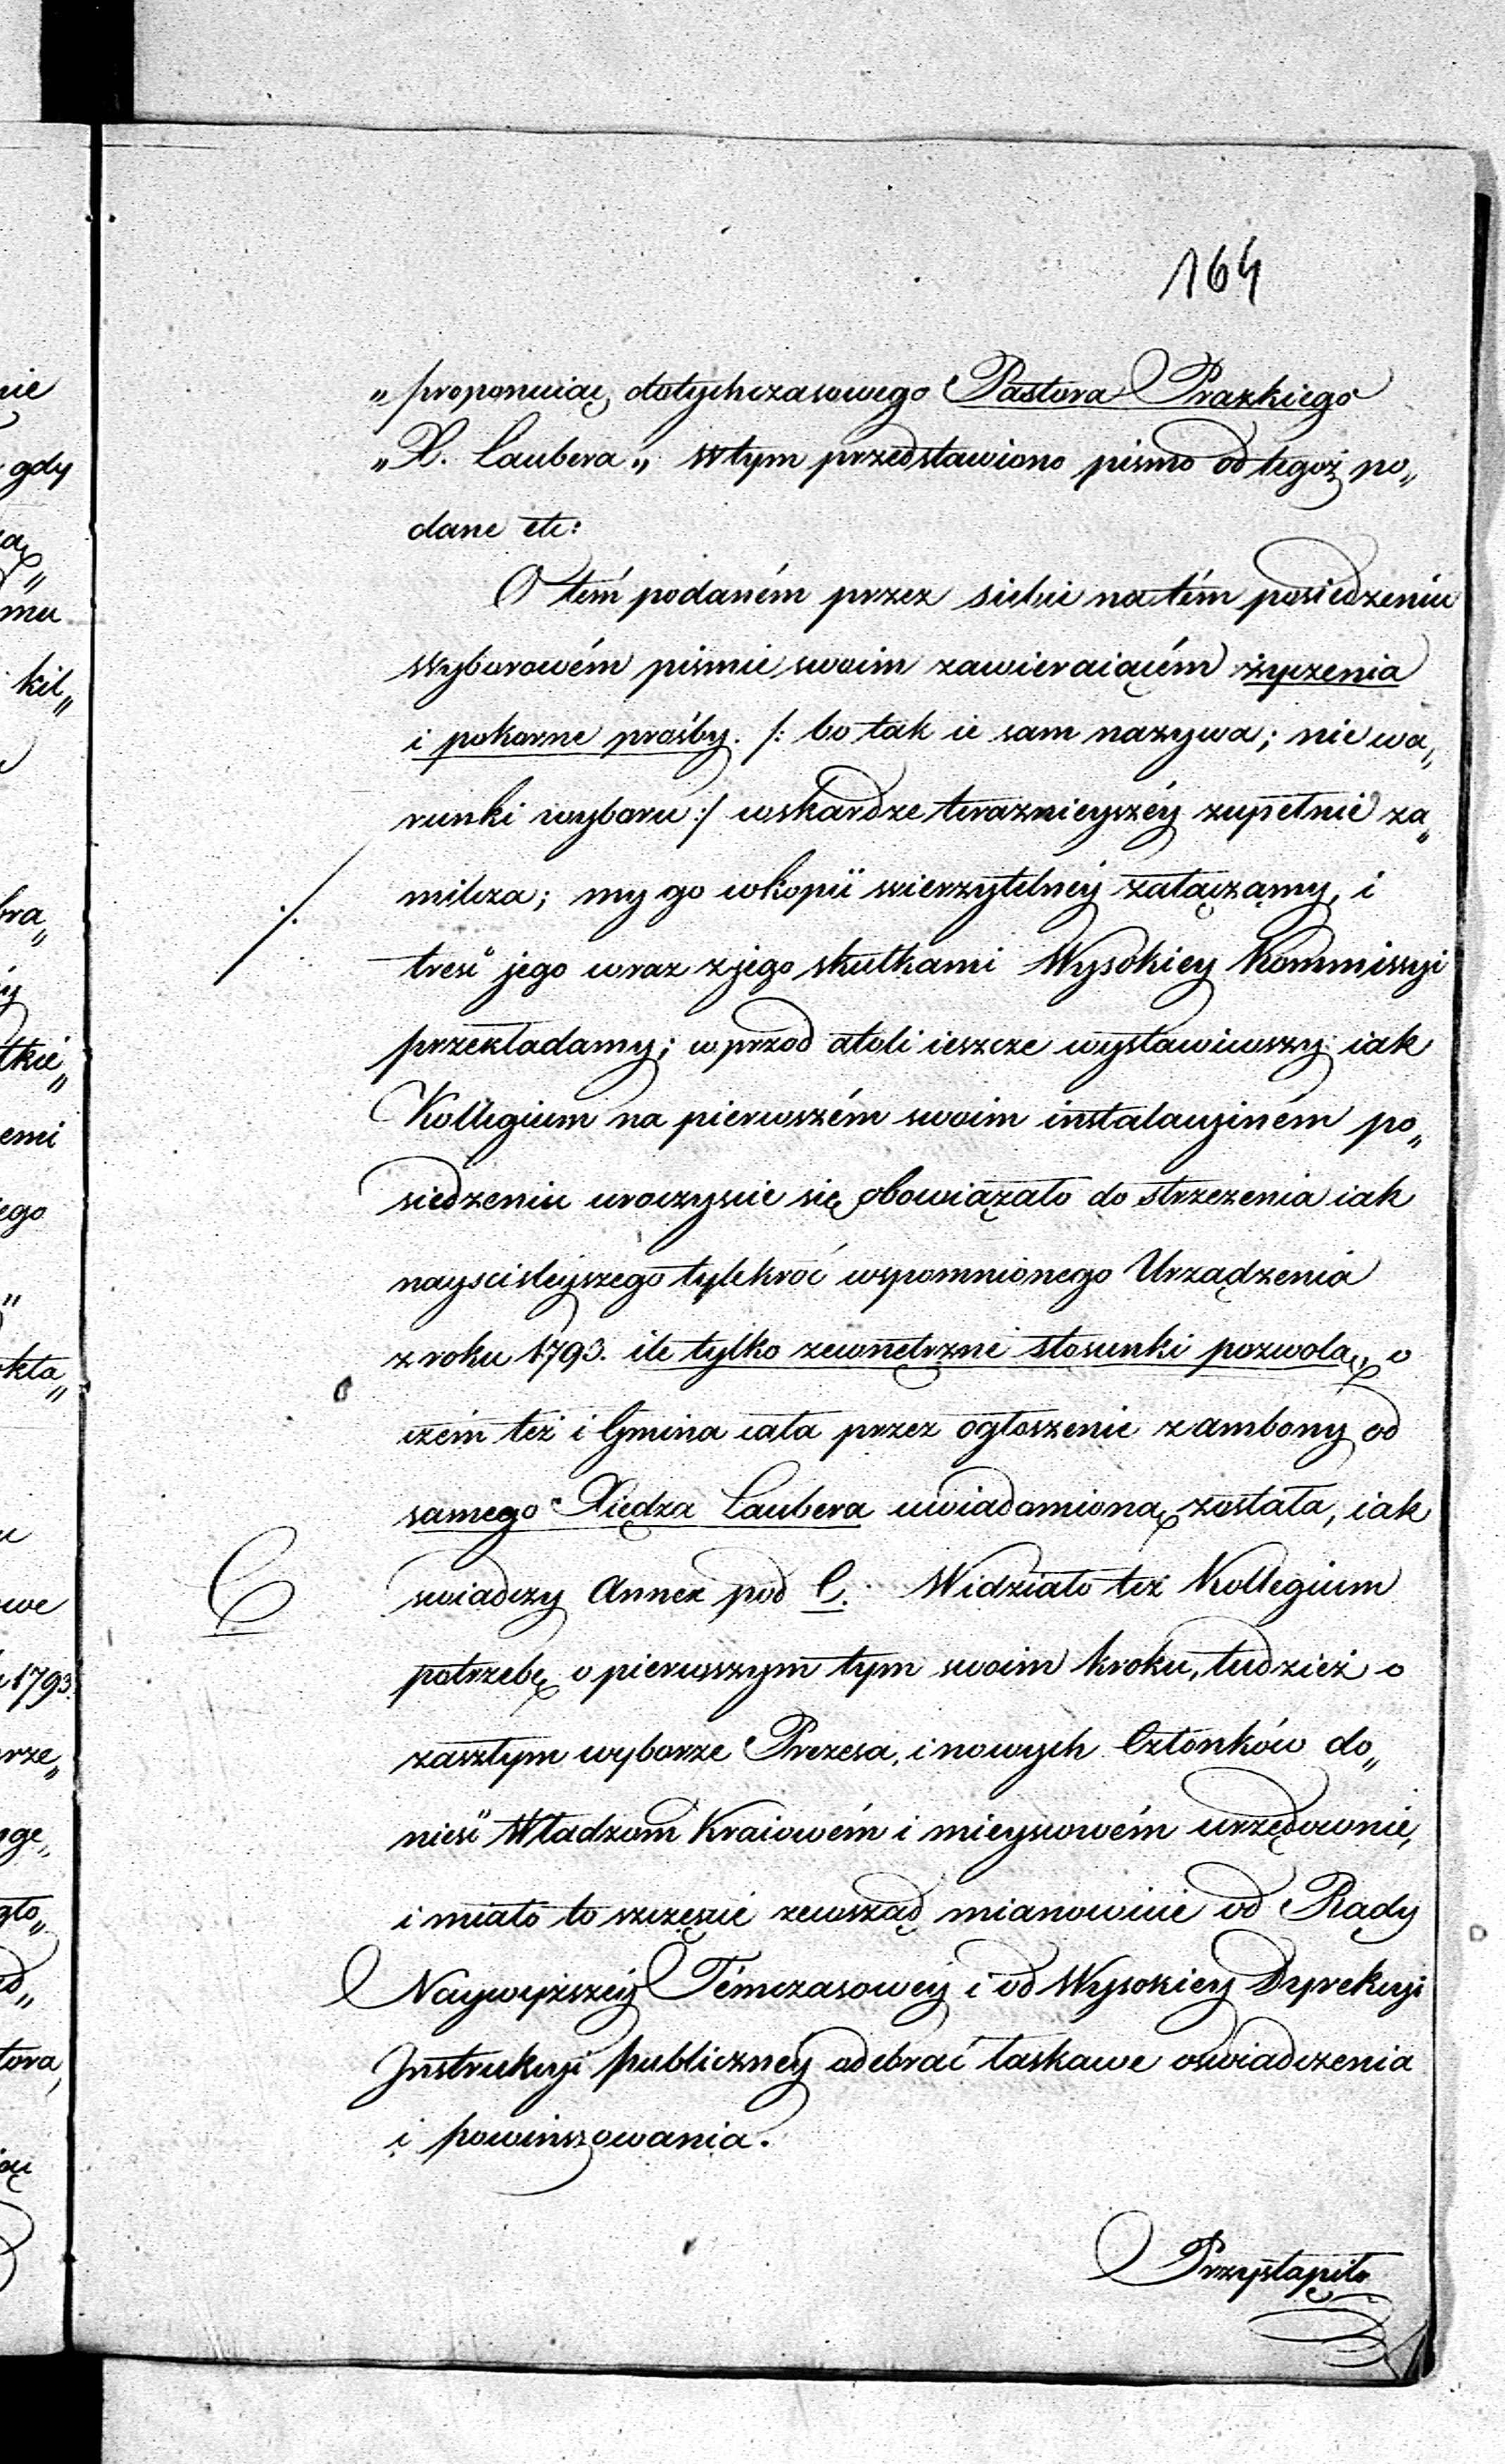 164
„proponuiąc dotychczasowego Pastora Prazkiego
„X. Laubera„ w tym przedstawiono pismo od tegoż po„
dane etc:
O tém podaném przez siebie na tém posiedzeniu
wyborowém pismie swoim zawieraiącém życzenia
i pokorne prośby. /: bo tak ie sam nazywa; nie wa„
runki wyboru :/ w skardze terazniejszéy zupełnie za„
milcza; my go w kopii wierzytelnéy załączamy, i
./.
treść jego wraz z jego skutkami Wysokiey Kommissyi
przekładamy; w przód atoli ieszcze wystawiwszy iak
Kollegium na pierwszém swoim instalacyiném po„
siedzeniu uroczyscie się obowiązało do strzezenia iak
nayscisleyszego tylekroć wspomnionego Urządzenia
z roku 1793. ile tylko zewnętrzne stosunki pozwolą, o
czém też i Gmina cała przez ogłoszenie z ambony od
samego Xiędza Laubera uwiadomioną została, iak
C
swiadczy Annex pod C. Widziało też Kollegium
potrzebę o pierwszym tym swoim kroku, tudzież o
zaszłym wyborze Prezesa, i nowych Członków do„
nieść Władzom Kraiowém i mieyscowém urzędownie,
i miało to szczęscie zewsząd mianowicie od Rady
Naywyższéy Témczasowey i od Wysokiey Dyrekcyi
Instrukcyi publiczney odebrać łaskawe oswiadczenia
i powinszowania.
Przystąpiło
nie
gdy
mu
kil„
bra„
tkie„
emi
ego
kła„
we
1793.
rze„
ge„
gło„
tora,